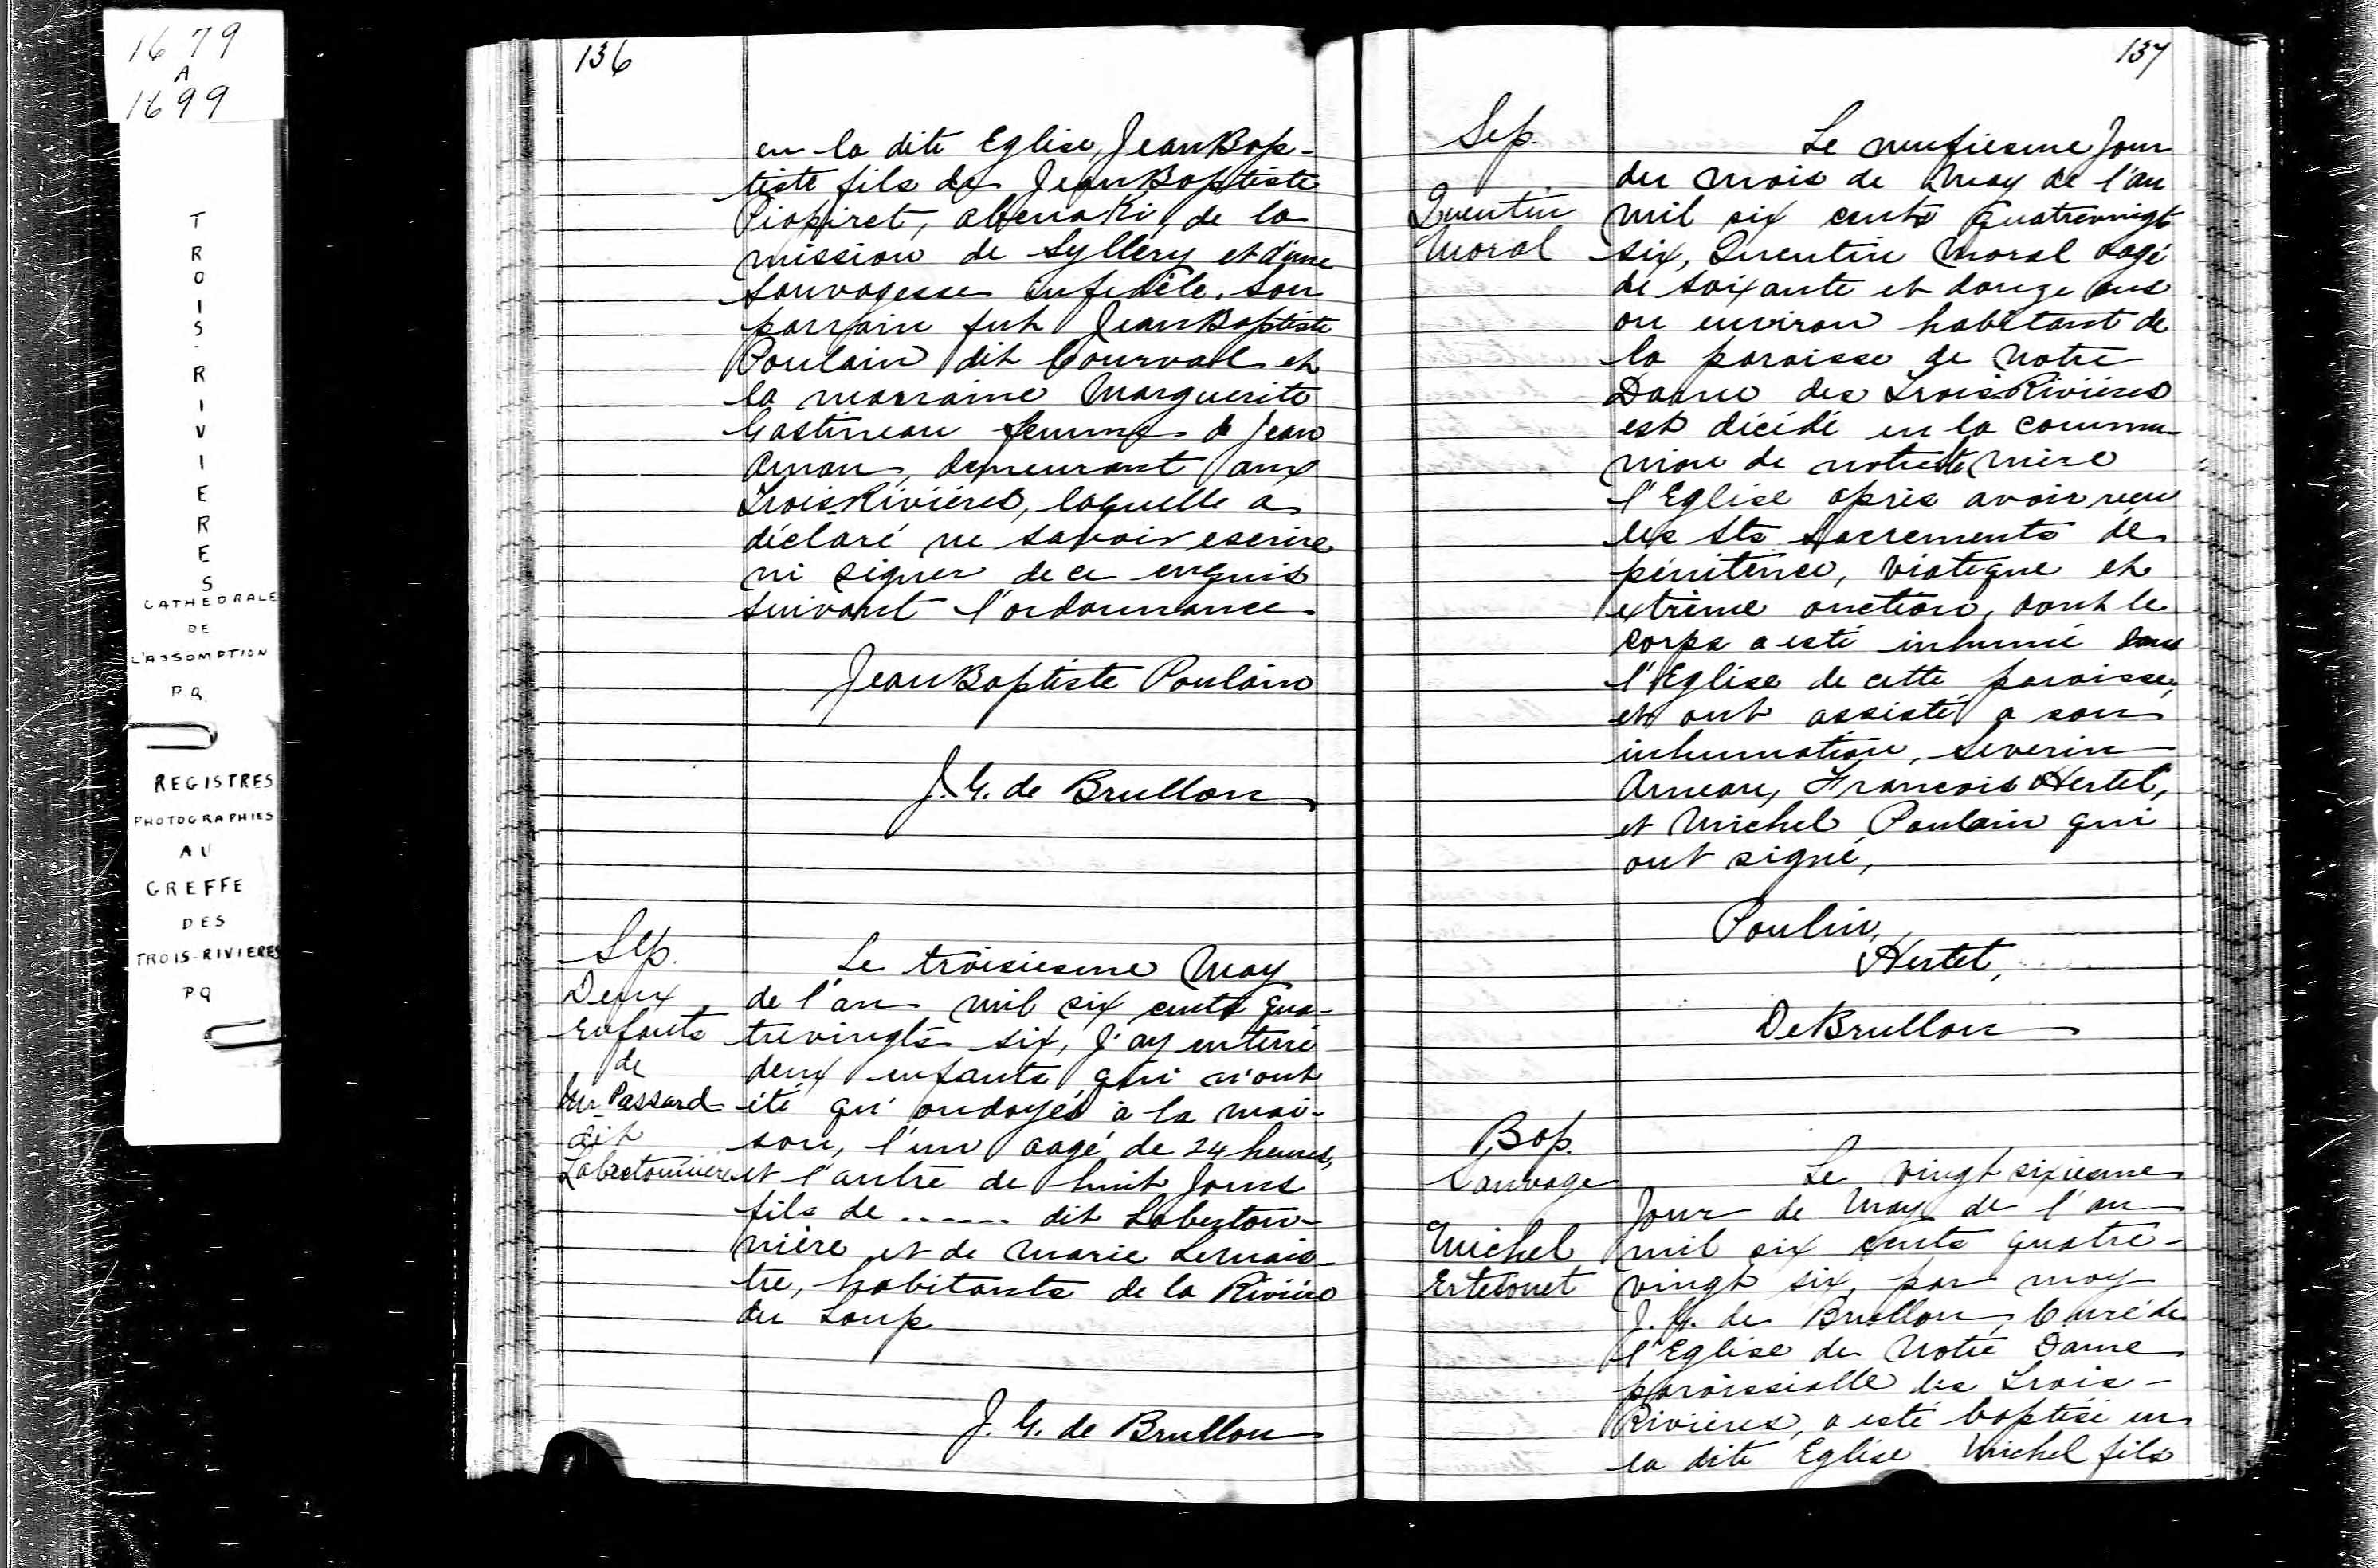 1679
A
1699
TROIS-RIVIERES
CATHEDRALE
DE
L'ASSOMPTION
PQ
REGISTRES
PHOTOGRAPHIES
AU
GREFFE
DES
TROIS-RIVIERES
PQ
136
en la dite Eglise, Jean Bap-
tiste fils de Jean Baptiste
Piapiret, abenaki, de la
mission de Syllery et d'une
sauvagesse infidèle. son
parrain fut Jean Baptiste
Poulain dit Courval et
la marraine Marguerite
Gastineau femme de Jean
Amau, demeurant aux
Trois Rivières, laquelle a
déclaré ne savoir escrire
ni signer de ce enquis
suivant l'ordonnance.
Jean Baptiste Poulain
J. G. de Brullon
Sep.
Deux
Enfants
de
Mr Passard
dit
Labretonniere
Le troisiesme May
de l'an mil six cents qua-
trevingts six, J'ay enterré
deux enfants qui n'ont
été qu'ondoyés à la mai-
son, l'un aagé de 24 heures,
et l'autre de huit Jours
fils de ...... dit Laberton-
nière et de Marie Lemais-
tre, habitants de la Rivière
du Loup
J. G. de Brullon
137
Sep.
Quentin
Moral
Le neufiesme Jour
du mois de May de l'an
mil six cents Quatrevingt
six, Quentin Moral aagé
de soixante et douze ans
ou environ habitant de
la paroisse de Notre
Dame des Trois Rivières
est décédé en la commu-
nion de notre Ste Mère
l'Eglise après avoir reçu
les Sts Sacrements de
pénitence, Viatique et
extrême onction, dont le
corps a esté inhumé dans
l'Eglise de cette paroisse,
et ont assisté a son
inhumation, Severin
Ameau, Francois Hertel,
et Michel Poulain qui
ont signé,
Poulin,
Hertel,
De Brullon
Bap.
Sauvage
Michel
Ertesonet
Le vingt sixiesme
Jour de May de l'an
mil six cents quatre-
vingt six, par moy
J. G. de Brullon, Curé de
l'Eglise de Notre Dame
paroissialle des Trois-
Rivières, a esté baptisé en
la dite Eglise Michel fils